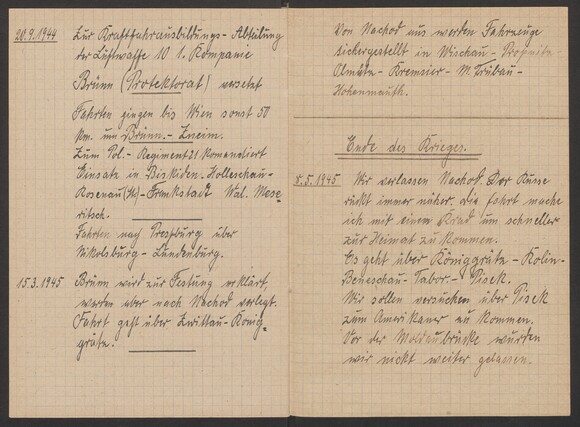 20.9.1944 Zur Kraftfahrausbildungs-Abteilung
der Luftwaffe 10 1. Kompanie
Brünn (Protektorat) versetzt
Fahrten gingen bis Wien sonst 50
km. um Brünn.- Znaim.
Zum Pol.- Regiment 21 komandiert
Einsatz in Beskiden. Holleschau-
Rosenau - Frankstadt Wal. Mese-
ritsch.
Fahrten nach Pressburg über
Nikolsburg - Lundenburg.
15.3.1945 Brünn wird zur Festung erklärt
werden aber nach Nachod verlegt.
Fahrt geht über Zwittau-König-
grätz.
Von Nachod aus werden Fahrzeuge
sichergestellt in Wischau - Prossnitz
Olmütz - Kremsier - M. Trübau -
Hohenmauth.
Ende des Krieges.
8.5.1945 Wir verlassen Nachod. Der Russe
rückt immer näher. Die fahrt mache
ich mit einem Krad um schneller
zur Heimat zu kommen.
Es geht über Königgrätz - Kolin-
Beneschau - Tabor.- Pisek.
Wir sollen versuchen über Pisek
zum Amerikaner zu kommen.
Vor der Moldaubrücke wurden
wir nicht weiter gelassen.